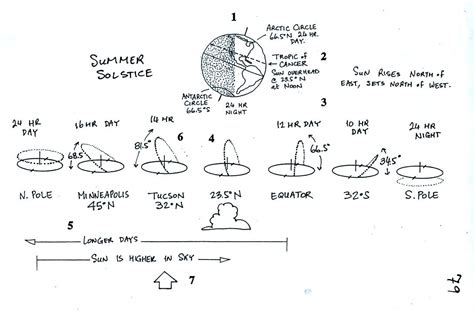 1
ARCTIC CIRCLE
66.5°N 24 HR.
DAY.
SUMMER
SOLSTICE
TROPIC OF
CANCER
2
SUN OVERHEAD
@ 23.5°N
at NOON
SUN RISES NORTH OF
EAST, SETS NORTH OF WEST.
ANTARCTIC
CIRCLE
66.5°S
24 HR
NIGHT
3
24 HR
DAY
16 HR DAY
14 HR
6
4
12 HR DAY
10 HR
DAY
24 HR
NIGHT
68.5°
81.5°
66.5°
34.5°
N. POLE
MINNEAPOLIS
45°N
TUCSON
32°N
23.5°N
EQUATOR
32°S
S. POLE
5
LONGER DAYS
SUN IS HIGHER IN SKY
7